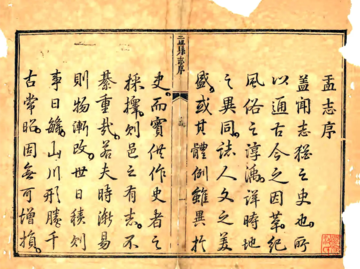 盂志序
蓋聞志猶之史也所
以通古今之因革紀
風俗之淳漓詳時地
之異同誌人文之美
盛或其體例雖異於
史而實供作史者之
採擇則邑之有志不
綦重哉若夫時漸易
則物漸改世日積則
事日繇山川形勝千
古常昭固無可增損